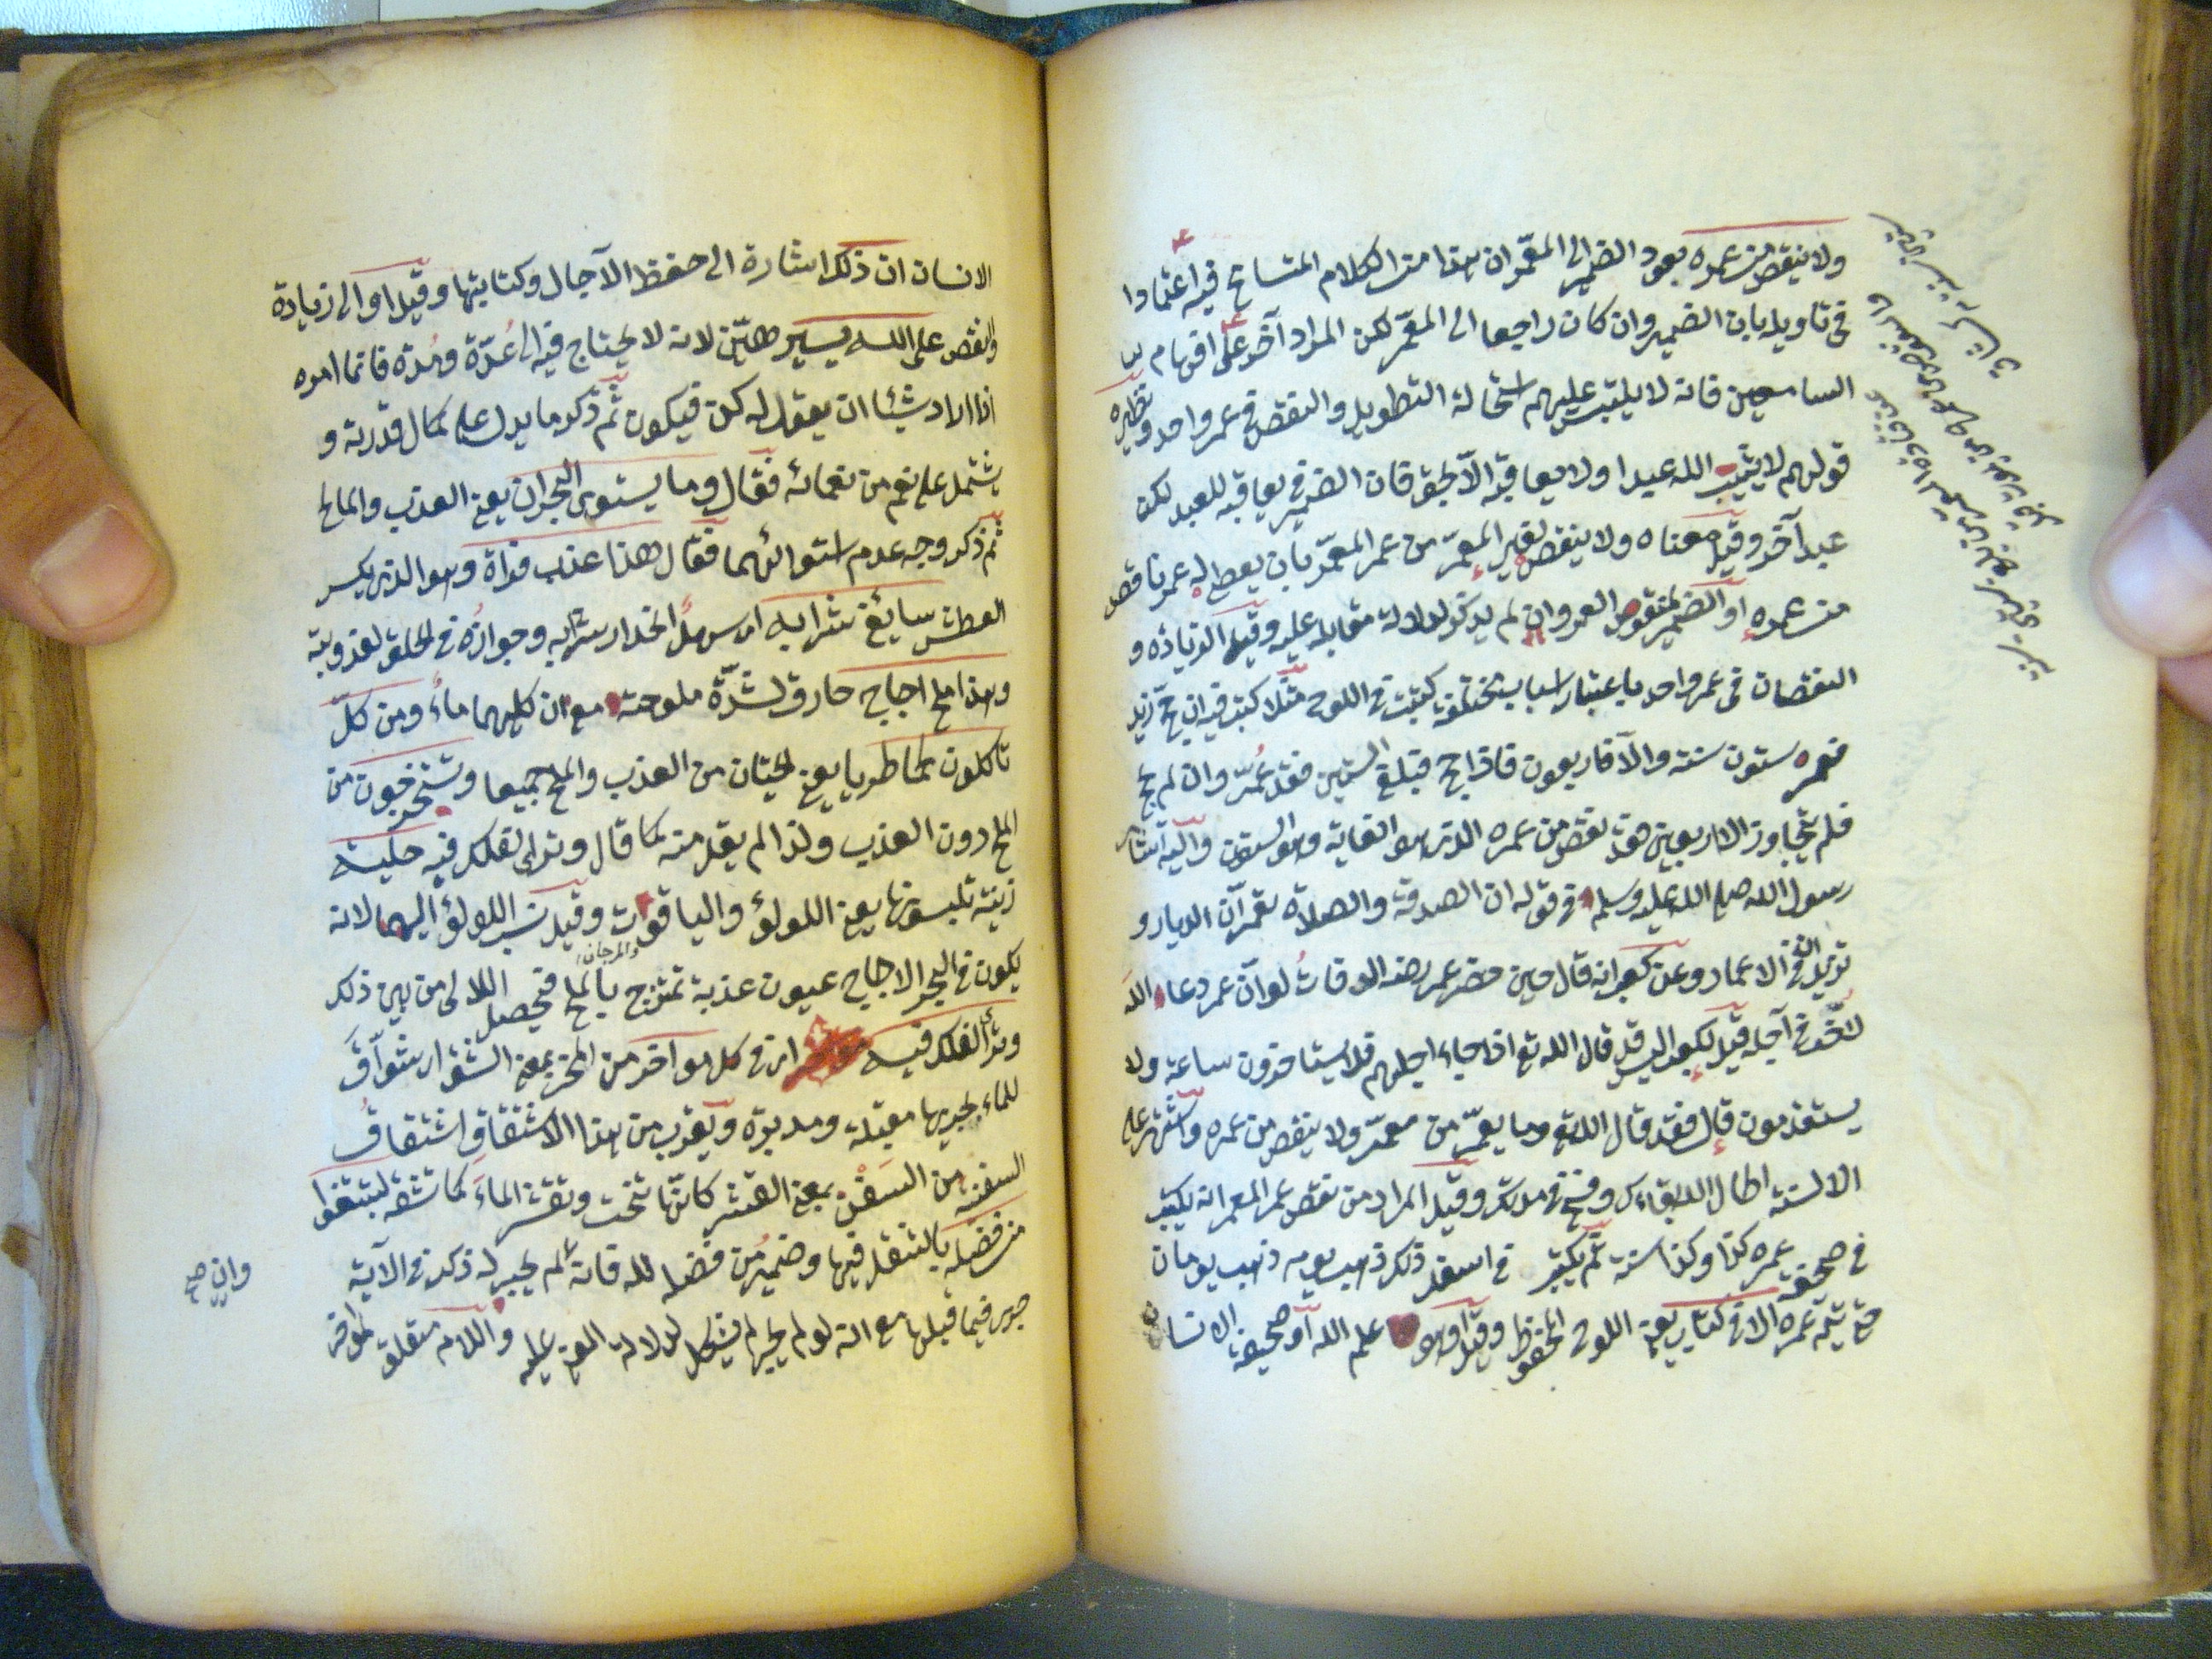 ولا ينقص من عمره بعود الضمير الى المعمّر ان هذا من الكلام المتسامح فيه اعتمادا
فى تاويله بان الضمير وان كان راجعا الى المعمّر لكن المراد آخر على افهام
السامعين فانه لا يلتبس عليهم استحالة التطويل والنقص فى عمر واحد ونظيره
قولهم لا يثيب الله عبدا ولا يعاقبه الّا بحق فان الضمير فى يعاقبه للعبد لكن
عبد آخر وقيل معناه ولا ينقص لغير المعمّر من عمر المعمّر بان يعطى له عمر ناقص
من عمره او الضمير لمنقوص العمر وان لم يذكر لدلالة مقابله عليه وقيل الزيادة و
النقصان فى عمر واحد باعتبار اسباب مختلفة كتبت فى اللوح مثلا كتب فيه ان حج زيد
فعمره ستون سنة والّا فاربعون فاذا حج فبلغ الستين فقد عُمّر وان لم يحج
فلم يتجاوز الاربعين فقد نقص من عمره الذى هو الغاية وهو الستون واليه اشار
رسول الله صلى الله عليه وسلم فى قوله ان الصدقة والصلاة تعمرّان الديار و
تزيدان فى الاعمار وعن كعب انه قال حين حضر عمر رضه الوفات لو انّ عمر دعا الله
لاُخّر فى آجله فقيل لكعب اليس قد قال الله تع اذا جاء اجلهم فلا يستأخرون ساعة ولا
يستقدمون قال فقد قال الله تع وما يعمّر من معمّر ولا ينقص من عمره واشتهر على
الالسنة اطال الله بقاءك وفسح فى مدتك وقيل المراد من نقص عمر المعمر انه يكتب
فى صحيفة عمره كذا وكذا سنة ثمّ يكتب فى اسفل ذلك ذهب يوم ذهب يومان
حتى يتم عمره الا فى كتاب يعنى اللوح المحفوظ وقيل هو علم الله او صحيفة الانسان
الانسان ان ذلك اشارة الى حفظ الآجال وكتابتها وقيل او الى زيادة
والنقص على الله يسير هيّن لانه لا يحتاج فيه الى عُدّة ومُدّة فانما امره
اذا اراد شيئا ان يقول له كن فيكون ثمّ ذكر ما يدل على كمال قدرته و
يشتمل على نعم من نعمائه فقال وما يستوى البحران يعنى العذب والمالح
ثم ذكر وجه عدم استوائهما فقال هذا عذب فراة وهو الذى يكسر
العطش سايغ شرابه اى سهل انحدار شرابه وجوازُه فى الحلق لعذوبته
وهذا ملح اجاج حارق لشدّة ملوحته مع ان كليهما ماءٌ ومن كلّ
تاكلون لحما طريا يعنى الحيتان من العذب والملح جميعا وتستخرجون من
الملح دون العذب ولذا لم يقل منه كما قال وترى الفلك فيه حلية
زينة تلبسونها يعنى اللؤلؤ والياقوت وقيل نسب اللؤلؤ اليهما لانه
والمرجان
يكون فى البحر الاجاج عيون عذبة تمتزج بالملح فيحصل اللالى من بين ذلك
وترى الفلك فيه مواخر اى فى كل مواخر من المخر بمعنى الشق اى شواقّ
للماء بجريها مقبلة ومدبرة ويقرب من هذا الاشتقاق اشتقاقُ
السفينة من السَفْن بمعنى القشر كانّها تنحت وتقشر الماءَ كما تشقه لتبتغوا
من فضله بالتنقل فيها وضمير من فضله لله فانه لم يجر له ذكر فى الآية
جرى فيما قبلها مع انه لو لم يجر لم يشكل لدلالة المعنى عليه واللام متعلقة بمواخر
وان صح